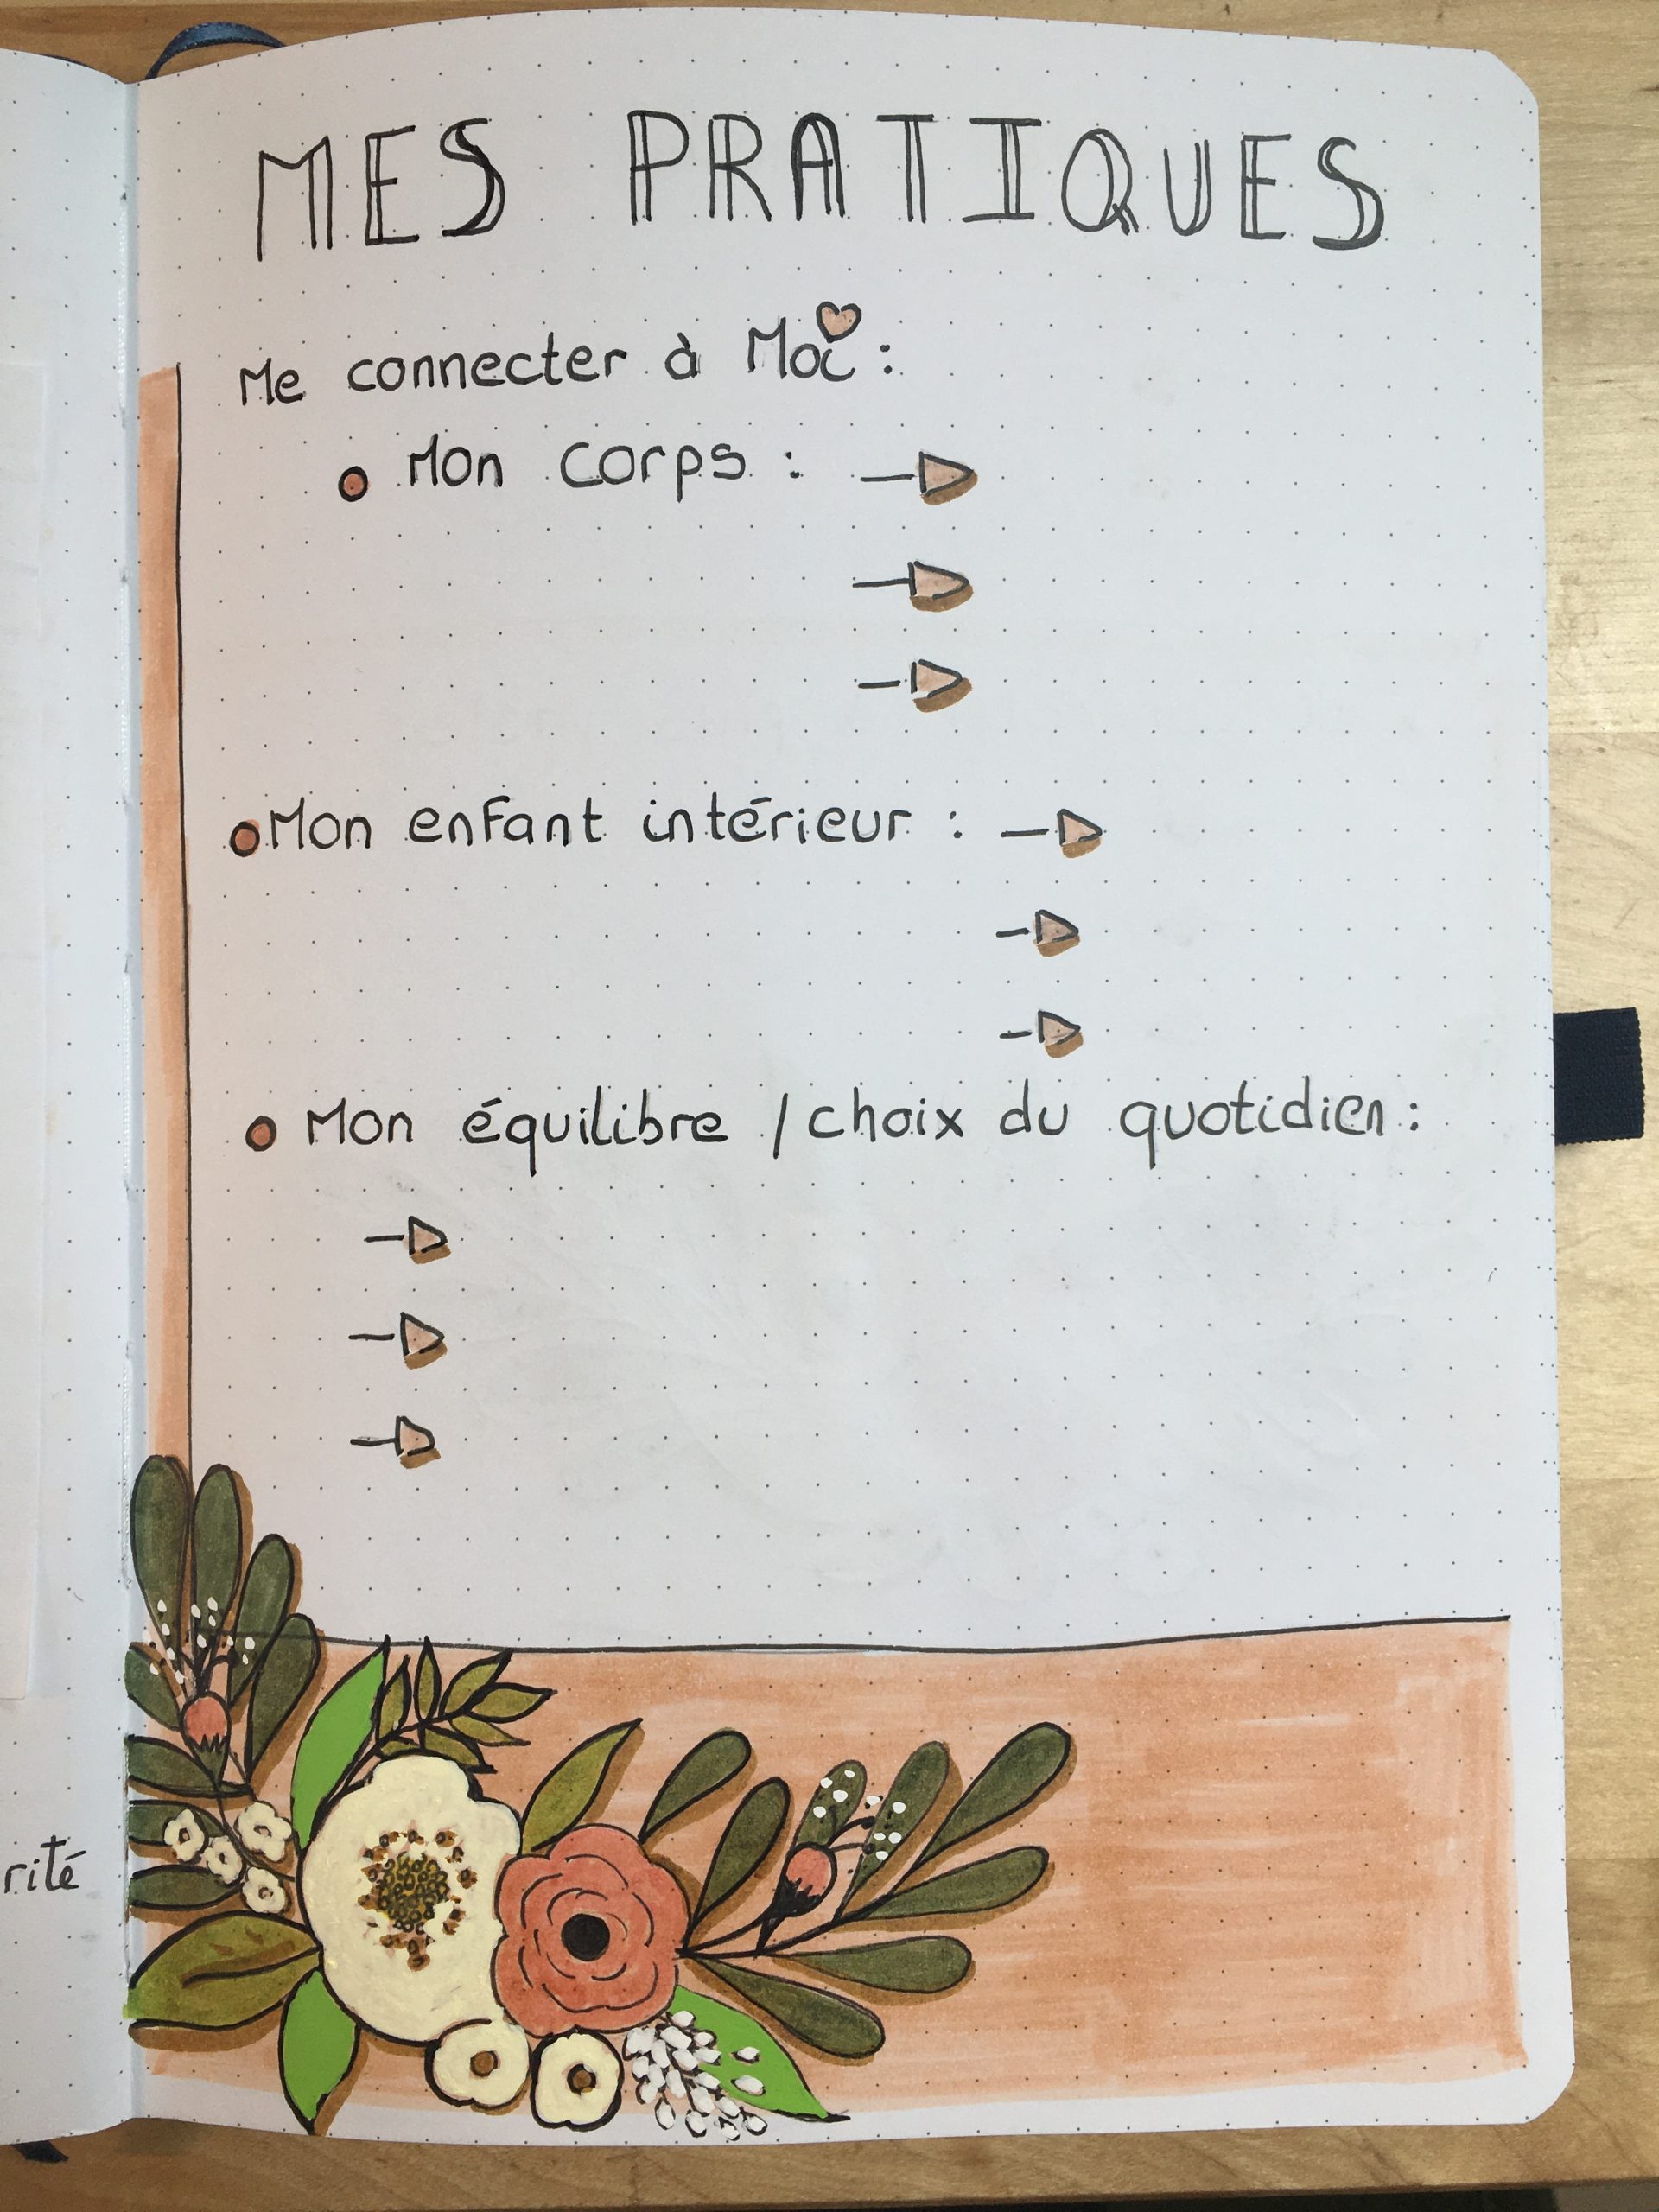 MES PRATIQUES
Me connecter à Moi :
Mon corps :
Mon enfant intérieur :
Mon équilibre / choix du quotidien :
rité